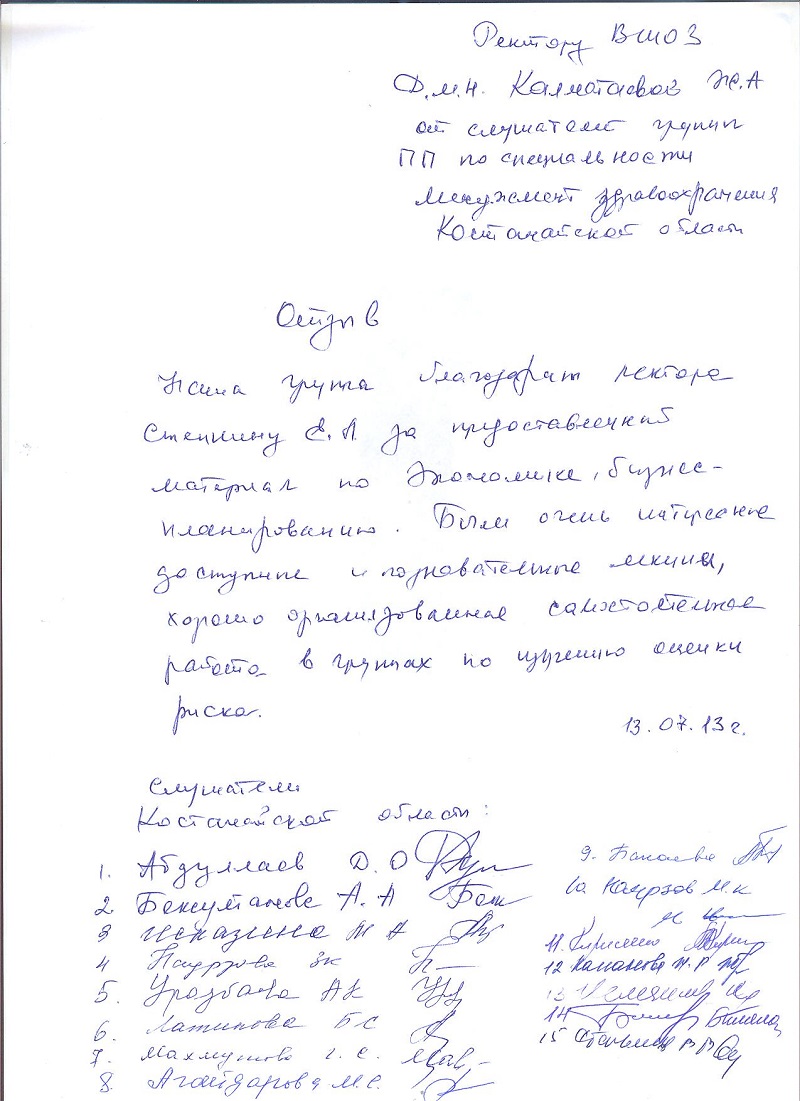 Ректору ВШОЗ
Д.м.н. Калматаевой Ж.А
от слушателей группы
ПП по специальности
менеджмент здравоохранения
Костанайской области
Отзыв
Наша группа благодарит лектора
Степкину Е.Л за предоставленный
материал по экономике, бизнес-
планированию. Были очень интересные
доступные и познавательные лекции,
хорошо организованная самостоятельная
работа в группах по изучению оценки
риска.
13.07.13г.
Слушатели
Костанайской области:
1. Абдуллаев Д.О
2. Бексултанова А.А
3 М А
4 Наурзова ЗК
5. Уразбаева АК
6. Латипова Б С
7. Махмутова
8. Агайдарова М.С.
9.
10. Наурзов М.К
11. Кириленко
12 Капанова Ж.Р
13
14
15 В В